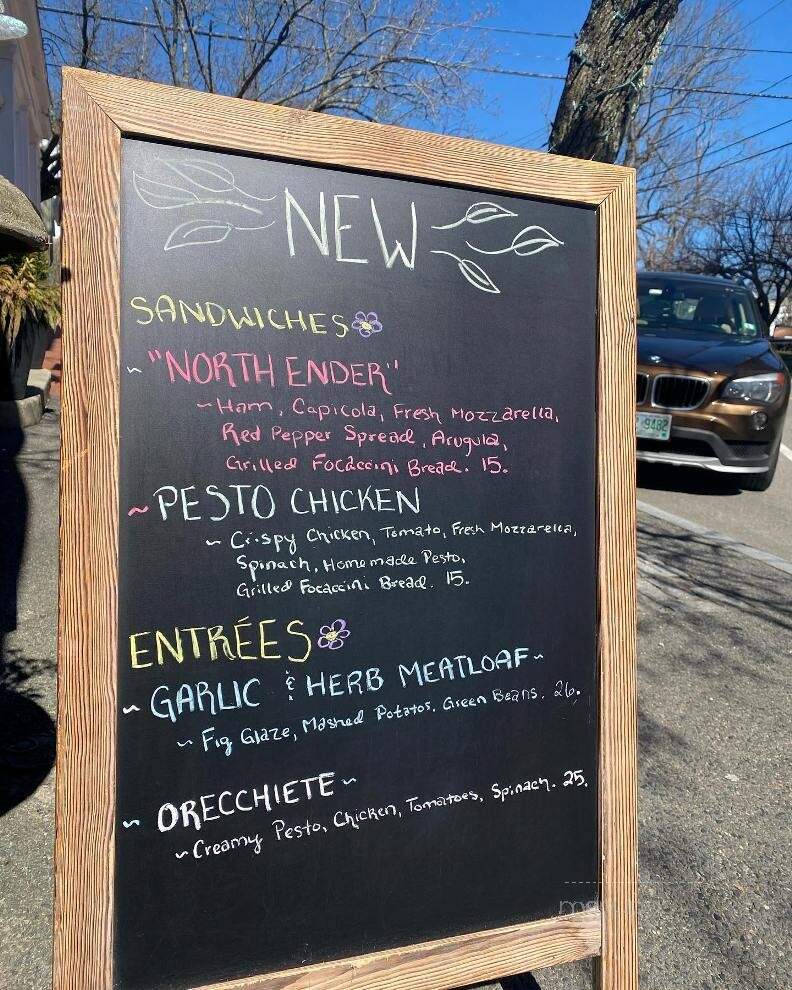 NEW
SANDWICHES
~ "NORTH ENDER"
~ Ham, Capicola, Fresh Mozzarella,
Red Pepper Spread, Arugula,
Grilled Focaccini Bread. 15.
~ PESTO CHICKEN
~ Crispy Chicken, Tomato, Fresh Mozzarella,
Spinach, Homemade Pesto,
Grilled Focaccini Bread. 15.
ENTRÉES
~ GARLIC & HERB MEATLOAF ~
~ Fig Glaze, Mashed Potatos, Green Beans. 26.
~ ORECCHIETE ~
~ Creamy Pesto, Chicken, Tomatoes, Spinach. 25.
9482